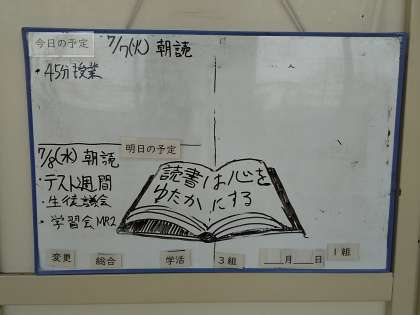 今日の予定
7/7(火) 朝読
・45分授業
明日の予定
7/8(水) 朝読
・テスト2週間
・生徒議会
・学習会MR2
読書は心を
ゆたかにする
変更
総合
学活
3組
___月___日
1組